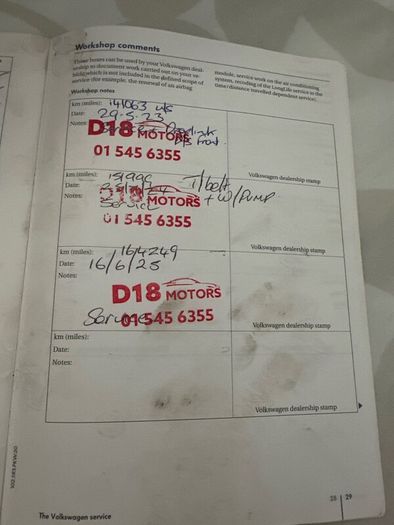 Workshop comments
These boxes can be used by your Volkswagen deal-
ership to document work carried out on your ve-
hicle which is not included in the defined scope of
service (for example, the renewal of an airbag
module, service work on the air conditioning
system, recoding of the LongLife service to the
time/distance travelled dependent service).
Workshop notes
km (miles): 141063
Date: 29-5-23
Notes:
D18 MOTORS
01 545 6355
Front.
Volkswagen dealership stamp
km (miles):
Date:
Notes: Service
T/belt
+ W/PUMP
D18 MOTORS
01 545 6355
Volkswagen dealership stamp
km (miles): 164249
Date: 16/6/25
Notes:
D18 MOTORS
Service
01 545 6355
Volkswagen dealership stamp
km (miles):
Date:
Notes:
Volkswagen dealership stamp
28 | 29
The Volkswagen service